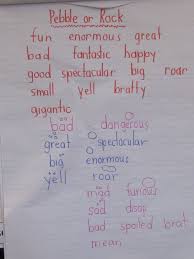 Pebble or Rock
fun enormous great
bad fantastic happy
good spectacular big roar
small yell bratty
gigantic
bad dangerous
great spectacular
big enormous
yell roar
mad furious
sad
bad spoiled brat
mean